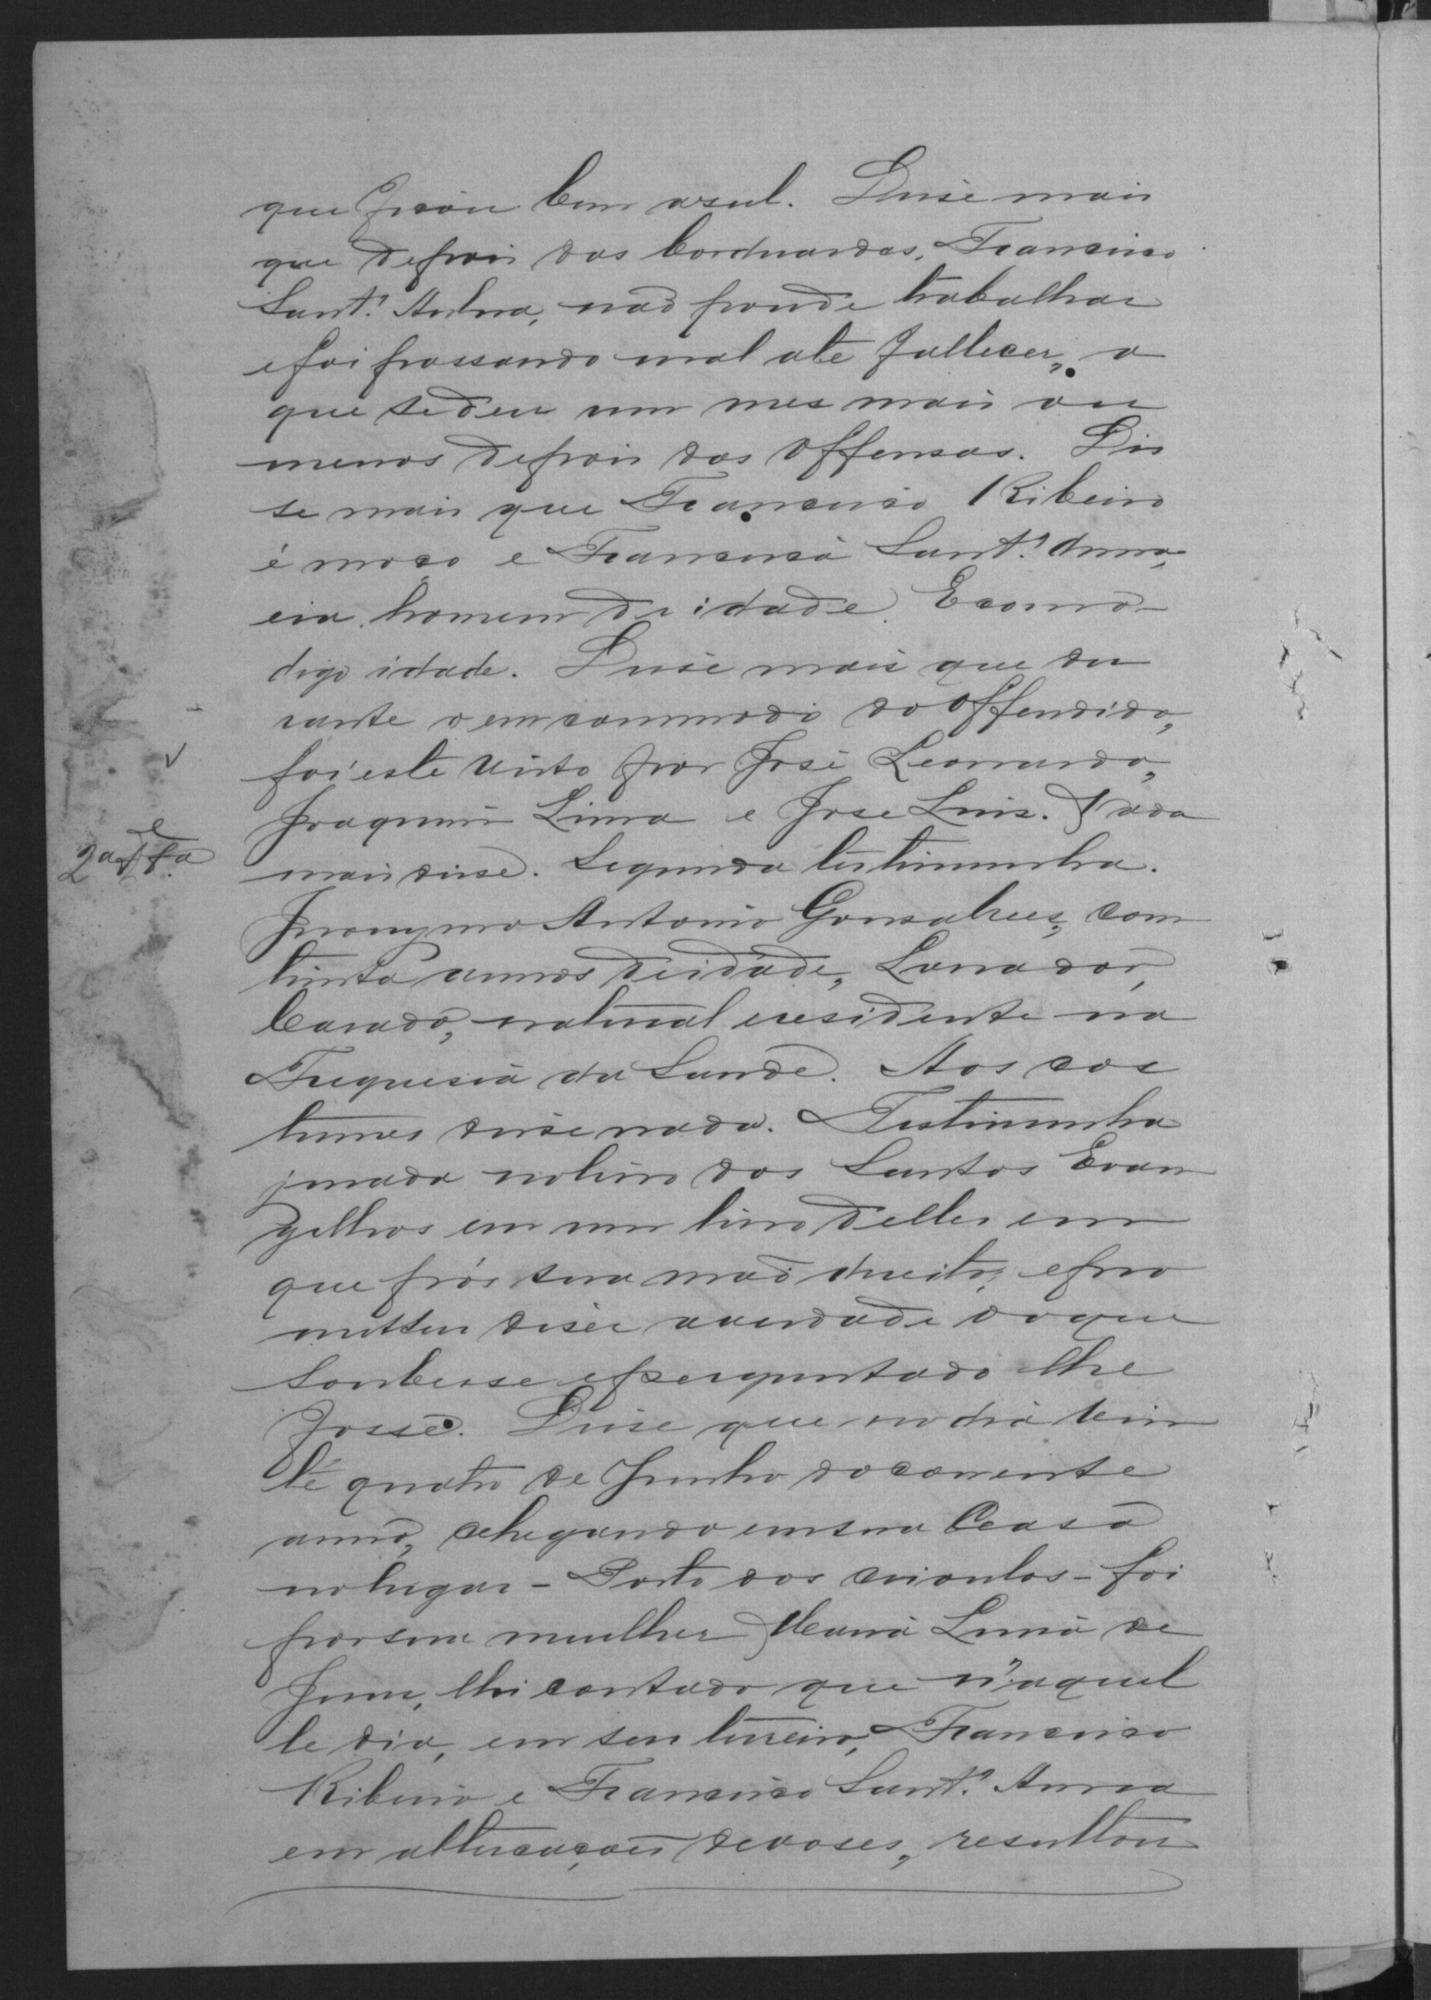 que ficou bem asul. Disse mais
que depois das borduadas, Francisco
Sant'Anna, não poude trabalhar
e foi passando mal até fallecer, o
que se deu um mes mais ou
menos depois das offensas. Dis
se mais que Francisco Ribeiro
é moço e Francisco Sant'Anna,
era homem de idade.
digo idade. Disse mais que du
rante o emcommodo do offendido,
foi este visto por José Leonardo,
Joaquim Lima e Jose Luis. Nada
mais disse. Segunda testimunha.
2ª Tª
Jeronymo Antonio Gonsalves, com
trinta annos de idade, Lavrador,
Casado, natural e residente na
Freguesia da Saude. Aos cos
tumes disse nada. Testimunha
jurada no livro dos Santos Evan
gelhos em um livro delles em
que pôs sua mão direita, e pro
metteu diser a verdade do que
soubesse e perguntado lhe
fosse. Disse que no dia vin
te quatro de Junho do corrente
anno, chegando em sua Casa
no lugar - Porto dos crioulos - foi
por sua mulher Maria Luisa de
Jesus, lhe contado que n'aquel
le dia, em seu terreiro, Francisco
Ribeiro e Francisco Sant'Anna
em altercações de voses, resultou